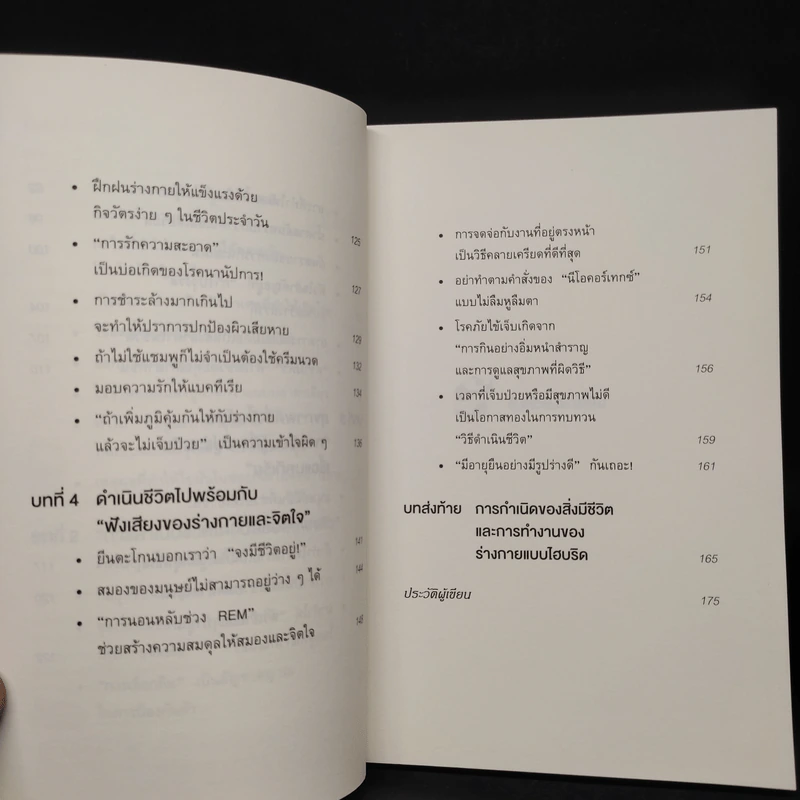 • ฝึกฝนร่างกายให้แข็งแรงด้วย
กิจวัตรง่าย ๆ ในชีวิตประจำวัน 125
• “การรักความสะอาด”
เป็นบ่อเกิดของโรคนานัปการ! 127
• การชำระล้างมากเกินไป
จะทำให้ปราการปกป้องผิวเสียหาย 129
• ถ้าไม่ใช้แชมพูก็ไม่จำเป็นต้องใช้ครีมนวด 132
• มอบความรักให้แบคทีเรีย 134
• “ถ้าเพิ่มภูมิคุ้มกันให้กับร่างกาย
แล้วจะไม่เจ็บป่วย” เป็นความเข้าใจผิด ๆ 136
บทที่ 4 ดำเนินชีวิตไปพร้อมกับ
“ฟังเสียงของร่างกายและจิตใจ”
• ยีนตะโกนบอกเราว่า “จงมีชีวิตอยู่!” 141
• สมองของมนุษย์ไม่สามารถอยู่ว่าง ๆ ได้ 144
• “การนอนหลับช่วง REM”
ช่วยสร้างความสมดุลให้สมองและจิตใจ
• การจดจ่อกับงานที่อยู่ตรงหน้า
เป็นวิธีคลายเครียดที่ดีที่สุด 151
• อย่าทำตามคำสั่งของ “นีโอคอร์เทกซ์”
แบบไม่ลืมหูลืมตา 154
• โรคภัยไข้เจ็บเกิดจาก
“การกินอย่างอิ่มหนำสำราญ
และการดูแลสุขภาพที่ผิดวิธี” 156
• เวลาที่เจ็บป่วยหรือมีสุขภาพไม่ดี
เป็นโอกาสทองในการทบทวน
“วิธีดำเนินชีวิต” 159
• “มีอายุยืนอย่างมีรูปร่างดี” กันเถอะ! 161
บทส่งท้าย การกำเนิดของสิ่งมีชีวิต
และการทำงานของ
ร่างกายแบบไฮบริด 165
ประวัติผู้เขียน 175